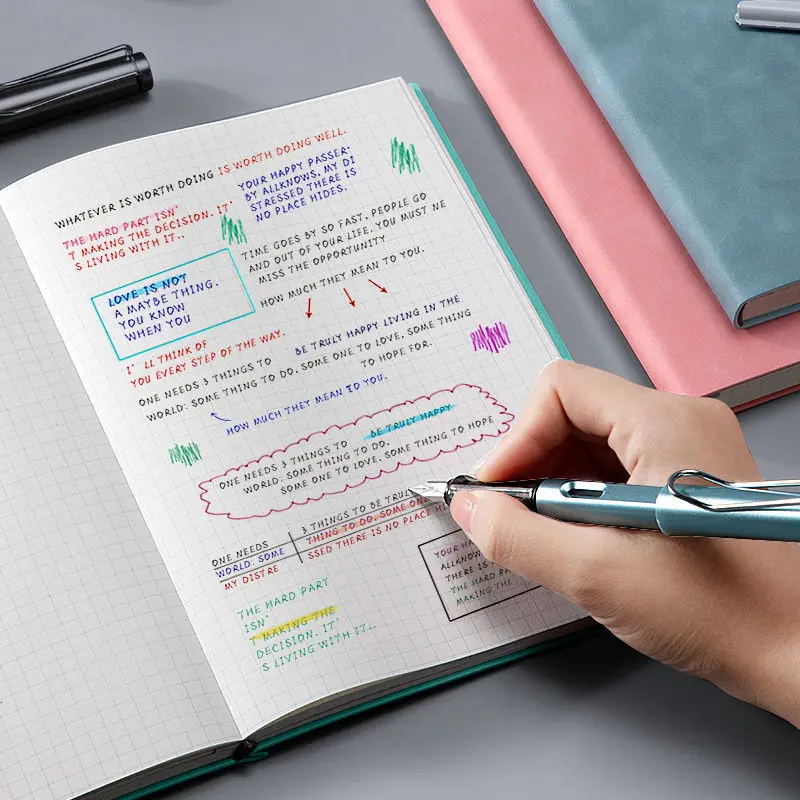 WHATEVER IS WORTH DOING IS WORTH DOING WELL.
THE HARD PART ISN'
T MAKING THE DECISION. IT'
S LIVING WITH IT..
YOUR HAPPY PASSER-
BY ALLKNOWS, MY DI
STRESSED THERE IS
NO PLACE HIDES.
TIME GOES BY SO FAST, PEOPLE GO
AND OUT OF YOUR LIFE. YOU MUST NE
MISS THE OPPORTUNITY
HOW MUCH THEY MEAN TO YOU.
LOVE IS NOT
A MAYBE THING.
YOU KNOW
WHEN YOU
I' LL THINK OF
YOU EVERY STEP OF THE WAY.
ONE NEEDS 3 THINGS TO BE TRULY HAPPY LIVING IN THE
WORLD: SOME THING TO DO, SOME ONE TO LOVE, SOME THING
TO HOPE FOR.
HOW MUCH THEY MEAN TO YOU.
ONE NEEDS 3 THINGS TO BE TRULY HAPPY
WORLD: SOME THING TO DO,
SOME ONE TO LOVE, SOME THING TO HOPE
ONE NEEDS 3 THINGS TO BE TRULY
WORLD: SOME THING TO DO, SOME ONE
MY DISTRE SSED THERE IS NO PLACE HI
YOUR HA
ALLKNOW
THERE IS
THE HARD PA
MAKING THE
THE HARD PART
ISN'
T MAKING THE
DECISION. IT'
S LIVING WITH IT..